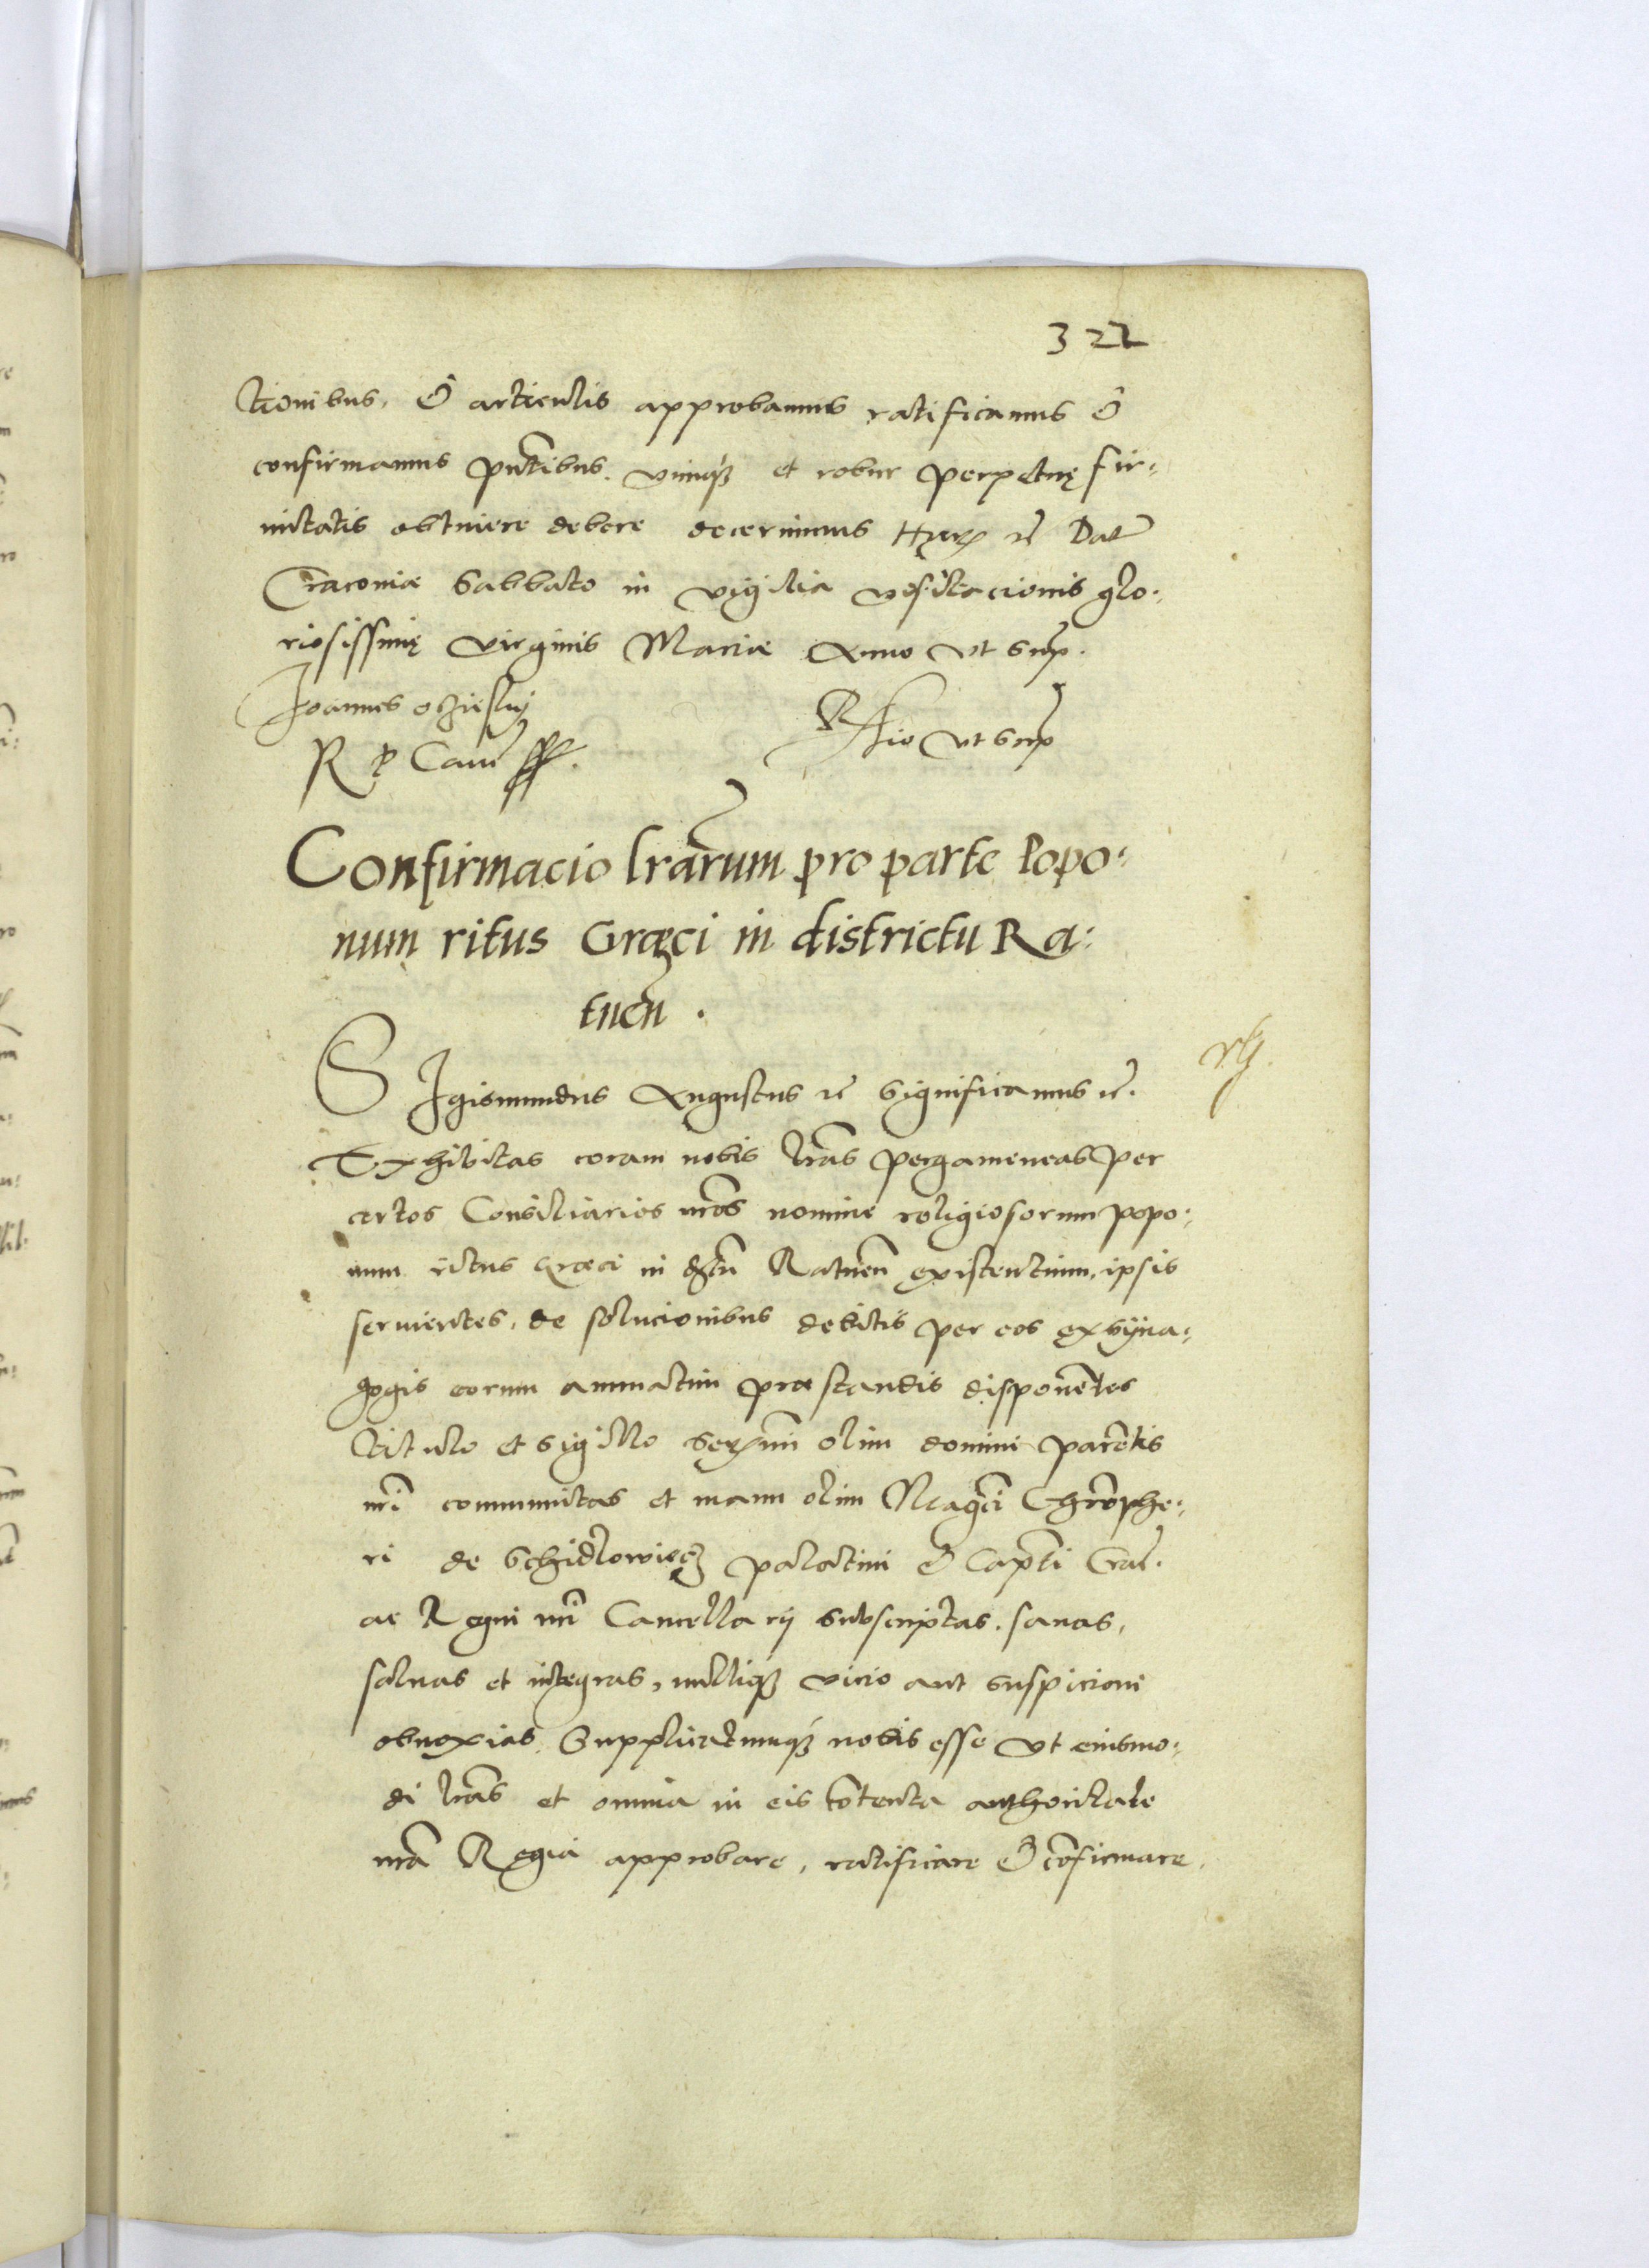 322
tionibus, & articulis approbamus ratificamus &
confirmamus pn̄tibus. vimq3 et robur perpetuę fir:
mitatis obtinere debere decernimus Harū rē Dat
Cracoviæ Sabbato in vigilia visitacionis glo:
riosissimę virginis Mariæ Anno vt supra.
Joannes Oczieski
R P Canc
R̄tio vt supra
Confirmacio l̄rarum pro parte Popo:
num ritus Græci in districtu Ra:
tnen̄ .
SIgismundus Augustus rē Significamus rē.
Exhibitas coram nobis l̄ras pergameneas per
certos Consiliarios nr̄os nomine religiosorum popo:
num ritus Græci in dstū Ratnen̄ existentium, ipsis
servientes, de solucionibus debitis per eos ex syna:
gogis eorum annuatim præstandis disponentes
titulo et sigillo Serēmi olim domini parentis
nr̄i communitas et manu olim Magci Chr̄ophe:
ri de Schidlowiecz palatini & Capti Crac.
ac Regni nr̄i Cancellarij subscriptas. sanas,
salvas et integras, nulliq3 vicio aut suspicioni
obnoxias. Supplicatumq3 nobis esse vt eiusmo:
di l̄ras et omnia in eis cōtenta authoritate
nr̄a Regia approbare, ratificare & cōfirmare